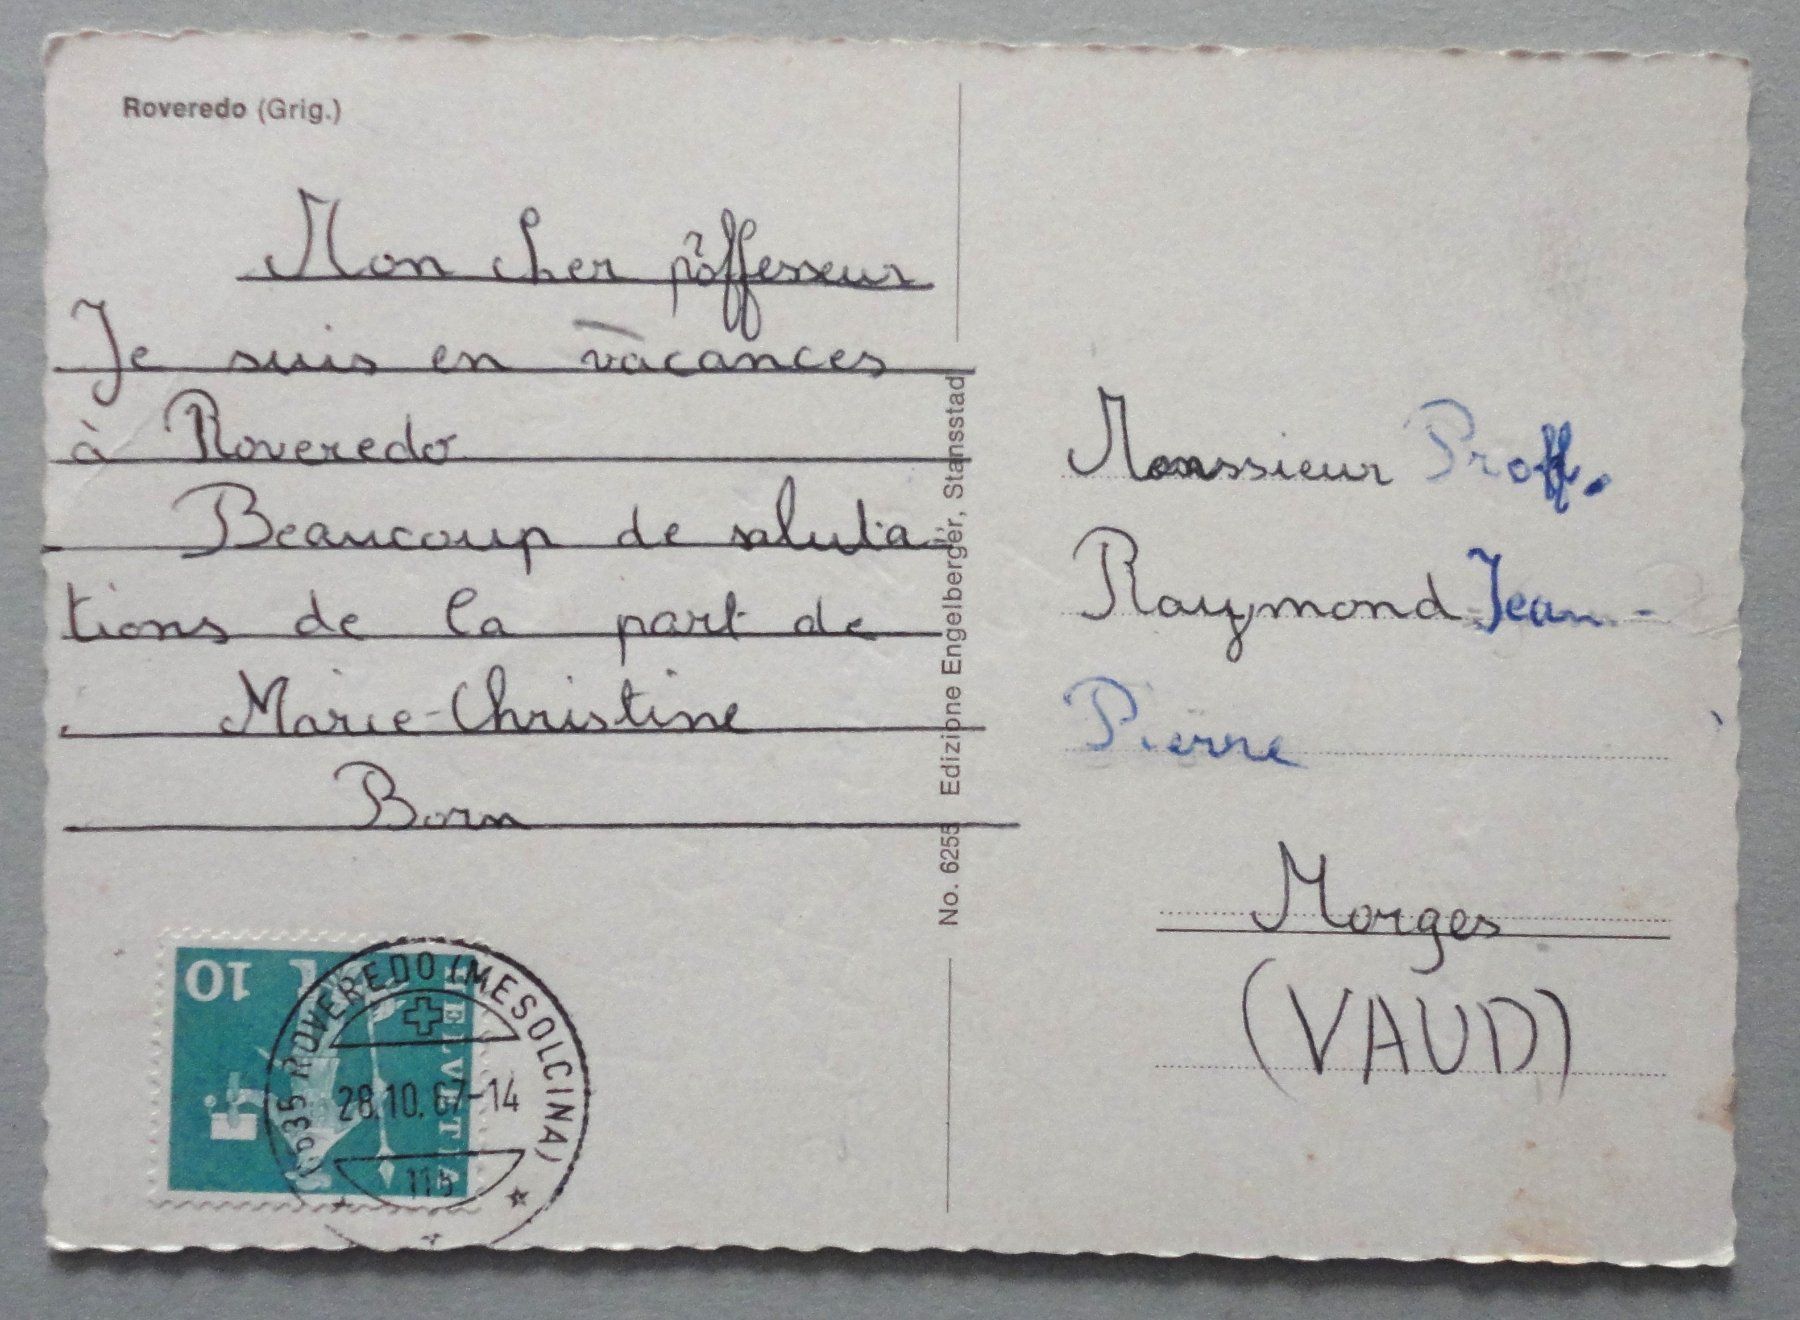 Roveredo (Grig.)
Mon cher prôffesseur
Je suis en vacances
à Roveredo
Beaucoup de saluta-
tions de la part de
Marie-Christine
Born
No. 6255 Edizione Engelberger, Stansstad
Monssieur Proff.
Raymond Jean-
Pierre
Morges
(VAUD)
10
HELVETIA
ROVEREDO (MESOLCINA)
28.10.67-14